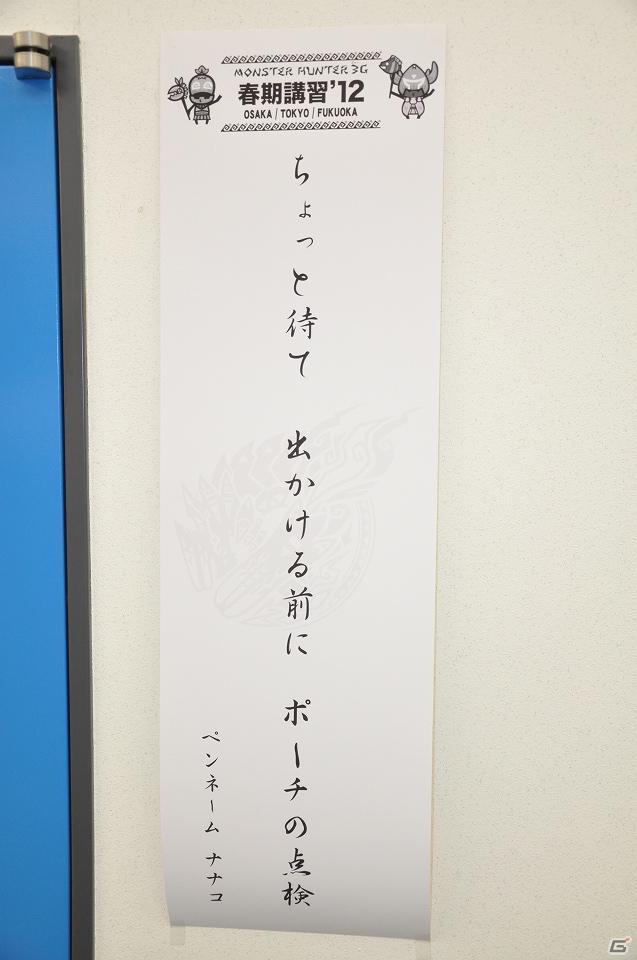 MONSTER HUNTER 3G
春期講習'12
OSAKA / TOKYO / FUKUOKA
ちょっと待て　出かける前に　ポーチの点検
ペンネーム ナナコ
G